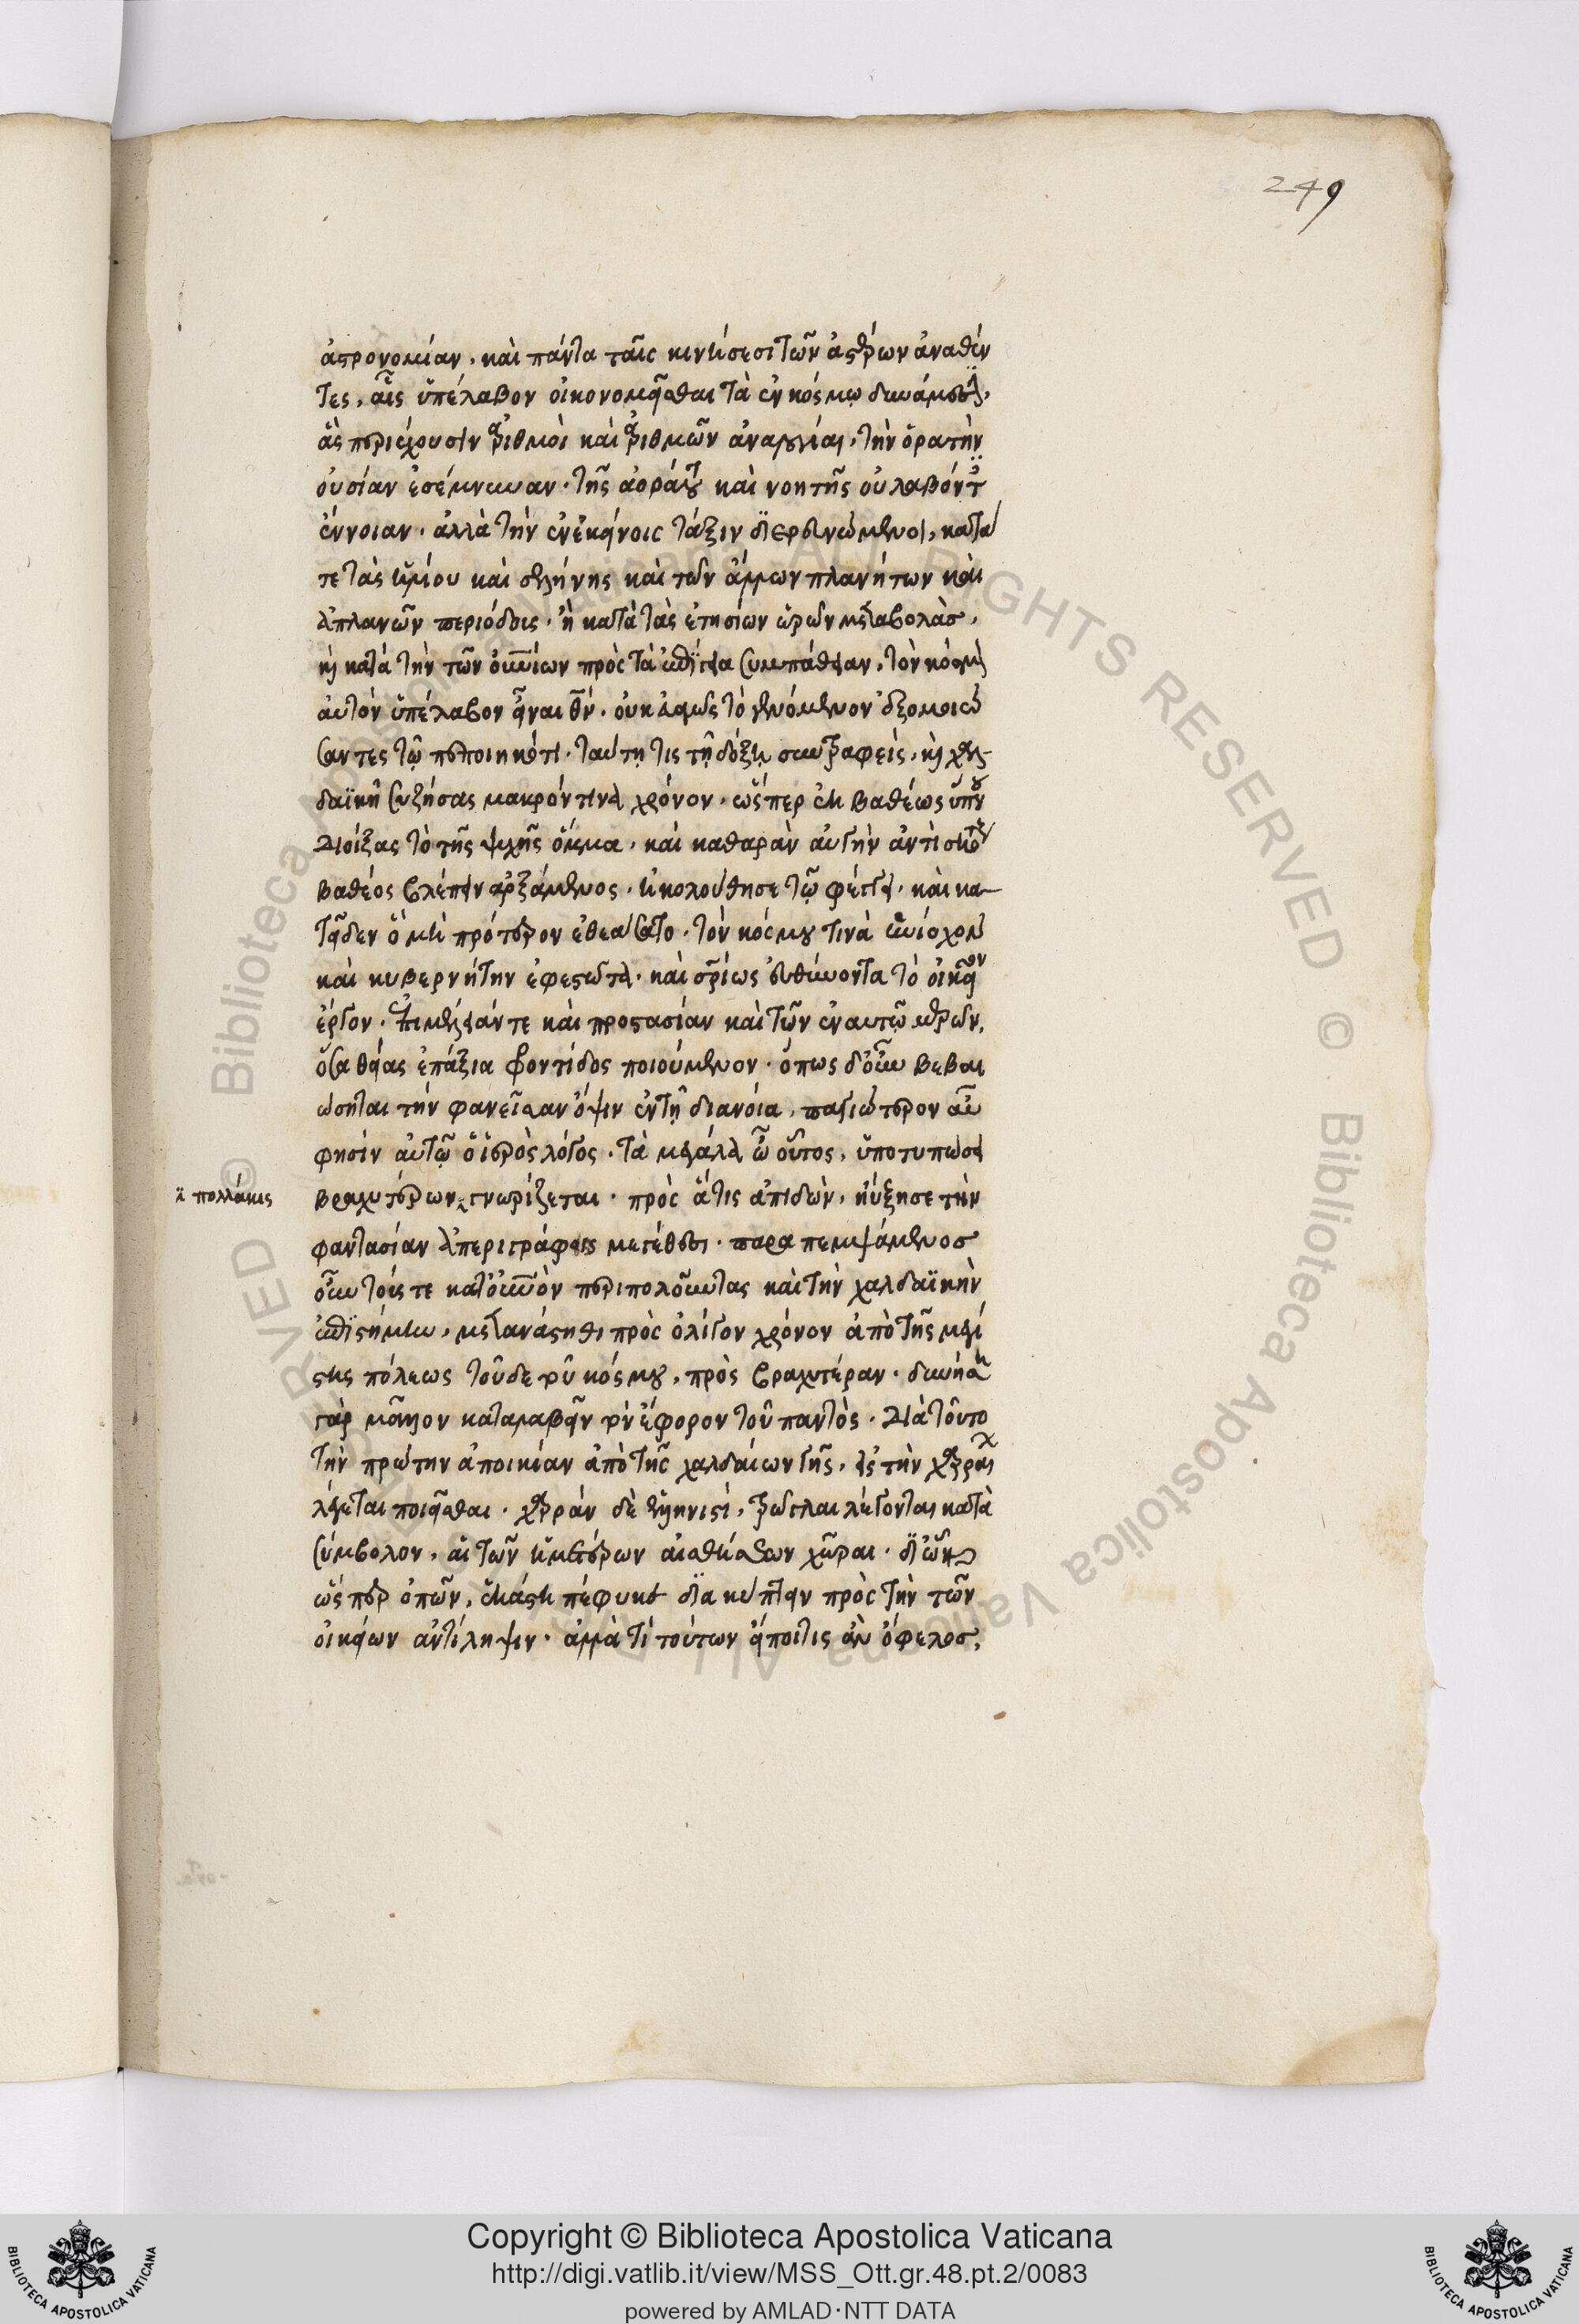 249
ἀστρονομίαν, καὶ πάντα ταῖς κινήσεσι τῶν ἀστέρων ἀναθέν
τες, αἷς ὑπέλαβον οἰκονομεῖσθαι τὰ ἐν κόσμω δυνάμεις,
ἃς περιέχουσιν ἀριθμοὶ καὶ ἀριθμῶν ἀναλογίαι, τὴν ὁρατὴν
οὐσίαν ἐσέμνυναν· τῆς ἀοράτου καὶ νοητῆς οὐ λαβόντες
ἔννοιαν· ἀλλὰ τὴν ἐν ἐκείνοις τάξιν διερευνώμενοι, κατά
τε τὰς ἡλίου καὶ σελήνης καὶ τῶν ἄλλων πλανήτων καὶ
ἀπλανῶν περιόδους· ἢ κατὰ τὰς ἐτησίων ὡρῶν μεταβολὰσ,
καὶ κατὰ τὴν τῶν οὐρανίων πρὸς τὰ ἐπίγεια συμπάθειαν, τὸν κόσμον
αὐτὸν ὑπέλαβον εἶναι θεόν· οὐκ εὐαγῶς τὸ γενόμενον ἐξομοιώ
σαντες τῶ πεποιηκότι· ταύτη τις τῆ δόξη συντραφεὶς, καὶ χαλ-
δαϊκῆ συζήσας μακρόν τινα χρόνον, ὥσπερ ἐκ βαθέως ὕπνου
διοίξας τὸ τῆς ψυχῆς ὄμμα, καὶ καθαρὰν αὐγὴν ἀντὶ σκότους
βαθέος βλέπειν ἀρξάμενος, ἠκολούθησε τῶ φέγγει, καὶ κα-
τεῖδεν ὃ μὴ πρότερον ἐθεάσατο, τὸν κόσμου τινὰ ἡνίοχον
καὶ κυβερνήτην ἐφεστῶτα, καὶ σωτηρίως εὐθύνοντα τὸ οἰκεῖον
ἔργον· ἐπιμέλειάν τε καὶ προστασίαν καὶ τῶν ἐν αυτῶ μερῶν,
ὅσα θείας ἐπάξια φροντίδος ποιούμενον· ὅπως δ' οὖν βεβαι
ώσηται τὴν φανεῖσαν ὄψιν ἐν τῆ διανοία, παγιώτερον αὖ
φησὶν αὐτῶ ὁ ἱερὸς λόγος· τὰ μεγάλα ὦ οὗτος, ὑποτυπώσει
βραχυτέρων γνωρίζεται· πρὸς ἅ τις ἀπιδὼν, ηὔξησε τὴν
πολλάκις
φαντασίαν ἀπεριγράφοις μεγέθεσι· παραπεμψάμενοσ
οὖν τούς τε κατ' οὐρανὸν περιπολοῦντας καὶ τὴν χαλδαϊκὴν
ἐπιστήμην, μετανάστηθι πρὸς ὀλίγον χρόνον ἀπὸ τῆς μεγί
στης πόλεως τοῦδε τοῦ κόσμου, πρὸς βραχυτέραν· δυνήση
γὰρ μᾶλλον καταλαβεῖν τὸν ἔφορον τοῦ παντὸς· διὰ τοῦτο
τὴν πρώτην ἀποικίαν ἀπὸ τῆς χαλδαίων γῆς, εἰς τὴν χαρραίων
λέγεται ποιεῖσθαι· χαρράν δὲ ἑλληνιστὶ, τρῶγλαι λέγονται κατὰ
σύμβολον, αἱ τῶν ἡμετέρων αἰσθήσεων χῶραι· δι' ὧν
ὥσπερ ὀπῶν, ἑκάστη πέφυκε διακύπτειν πρὸς τὴν τῶν
οἰκείων ἀντίληψιν· ἀλλὰ τί τούτων εἴποι τις ἂν ὄφελοσ,
Copyright © Biblioteca Apostolica Vaticana
http://digi.vatlib.it/view/MSS_Ott.gr.48.pt.2/0083
powered by AMLAD·NTT DATA